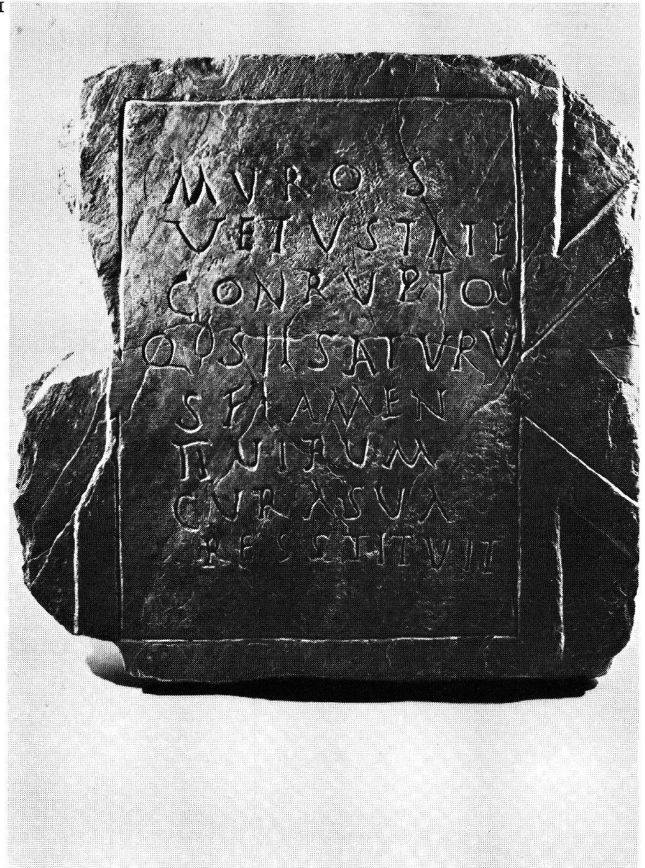 MVROS
VETVSTATE
CONRVPTOS
QVSIISATVRV
S FLAMEN
IIVIRVM
CVRASVA
RESSTITVIT